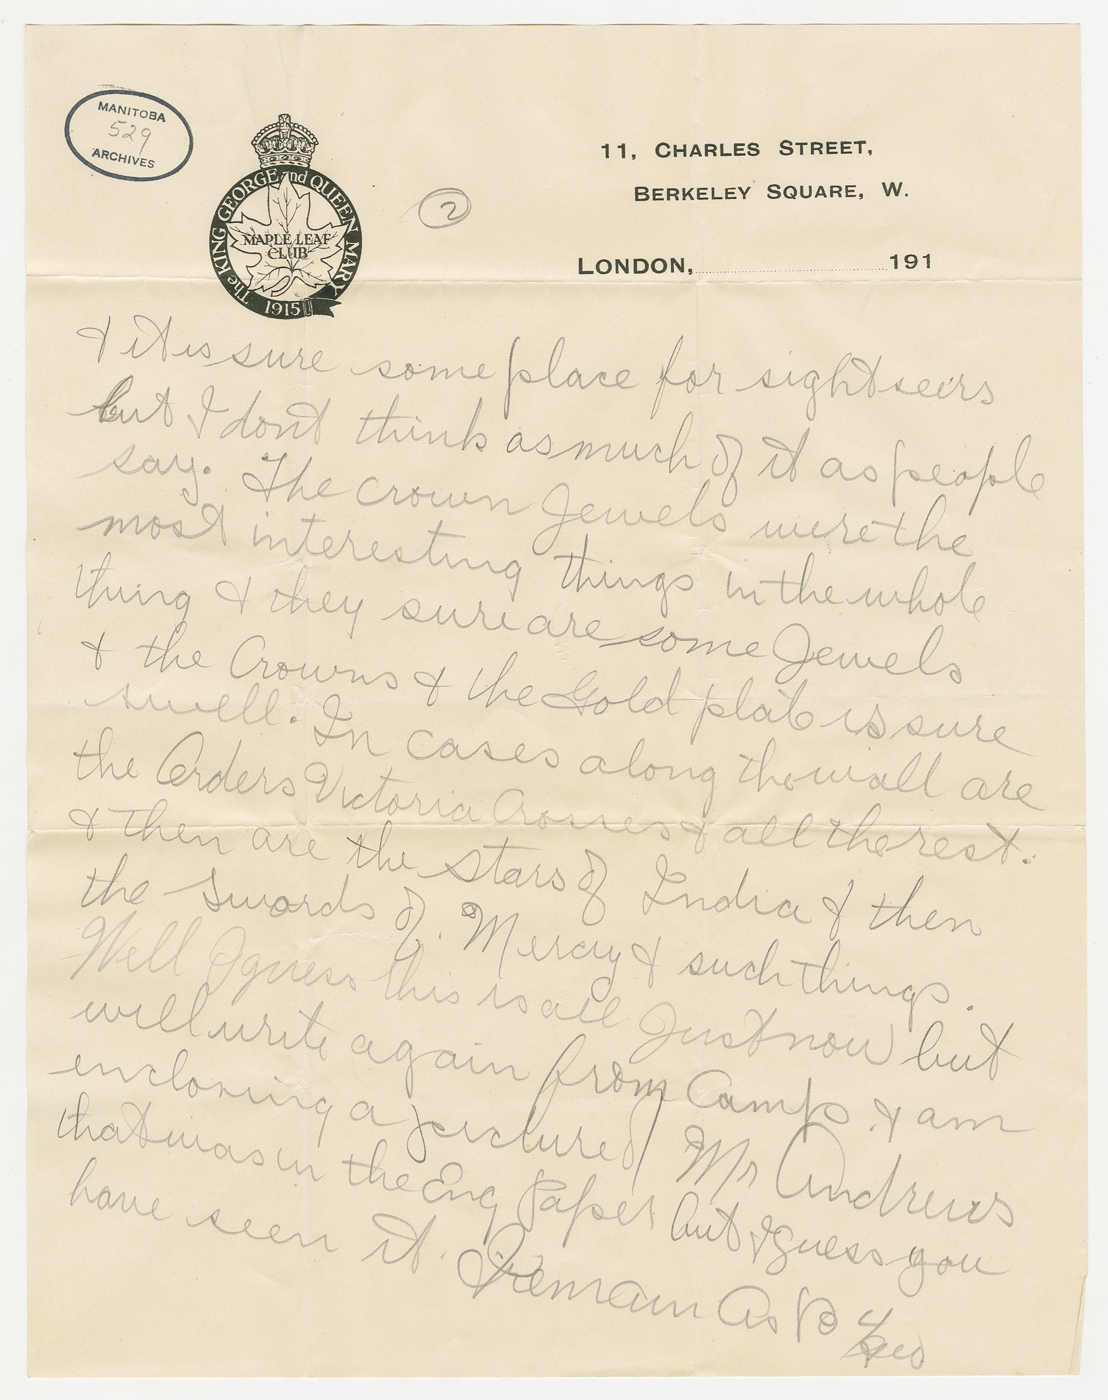 MANITOBA
529
ARCHIVES
The KING GEORGE and QUEEN MARY
MAPLE LEAF
CLUB
1915
2
11, CHARLES STREET,
BERKELEY SQUARE, W.
LONDON, 191
& it is sure some place for sightseers
but I dont think as much of it as people
say. The crown Jewels were the
most interesting things in the whole
thing & they sure are some Jewels
& the Crowns & the Gold plate is sure
swell. In cases along the wall are
the Orders Victoria Crosses & all the rest.
& then are the Stars of India & then
the Swords of Mercy & such things.
Well I guess this is all Just now but
will write again from Camp & am
enclosing a picture of Mr Andrews
that was in the Eng Paper but I guess you
have seen it. I remain As B 4
Geo